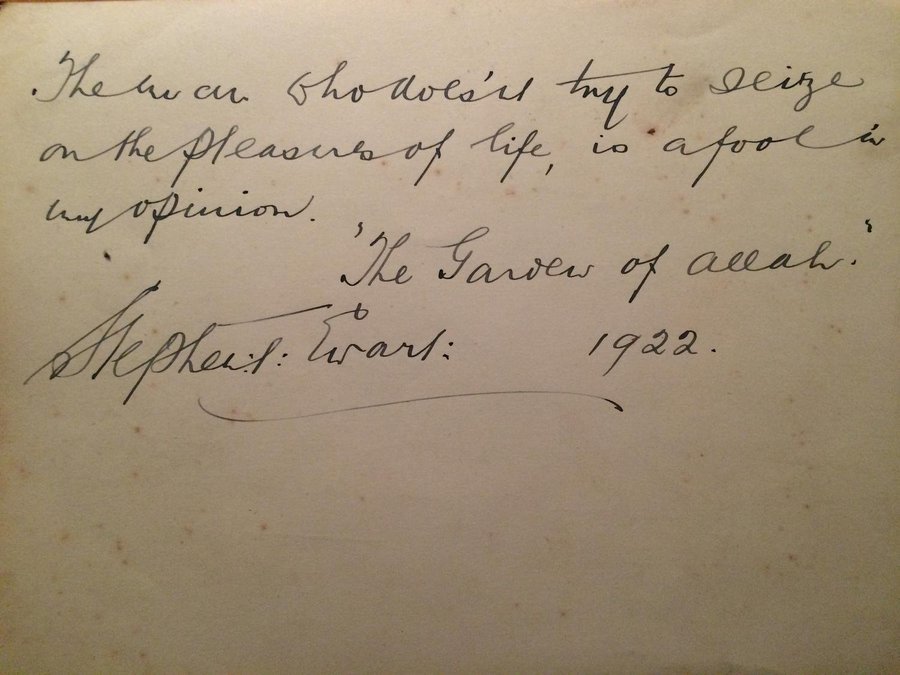 The man who does'nt try to seize
on the pleasures of life, is a fool in
my opinion.
"The Garden of Allah."
Stephen T. Ewart: 1922.